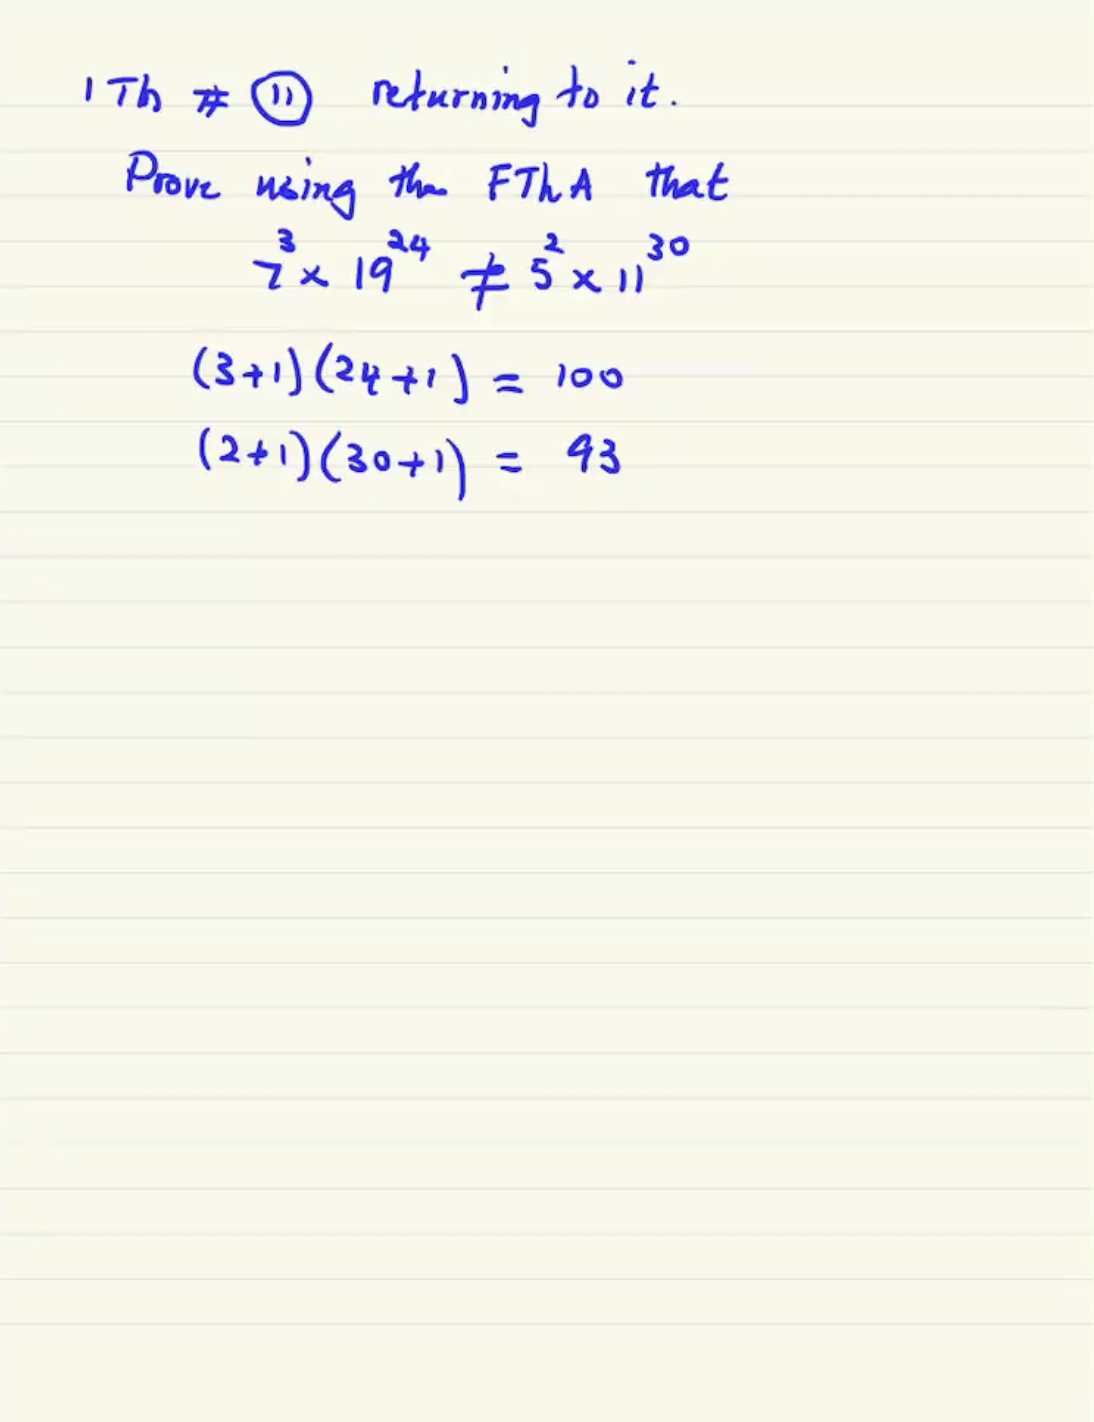 1 Th # 11 returning to it.
Prove using the FThA that
7³ × 19²⁴ ≠ 5² × 11³⁰
(3+1)(24+1) = 100
(2+1)(30+1) = 93